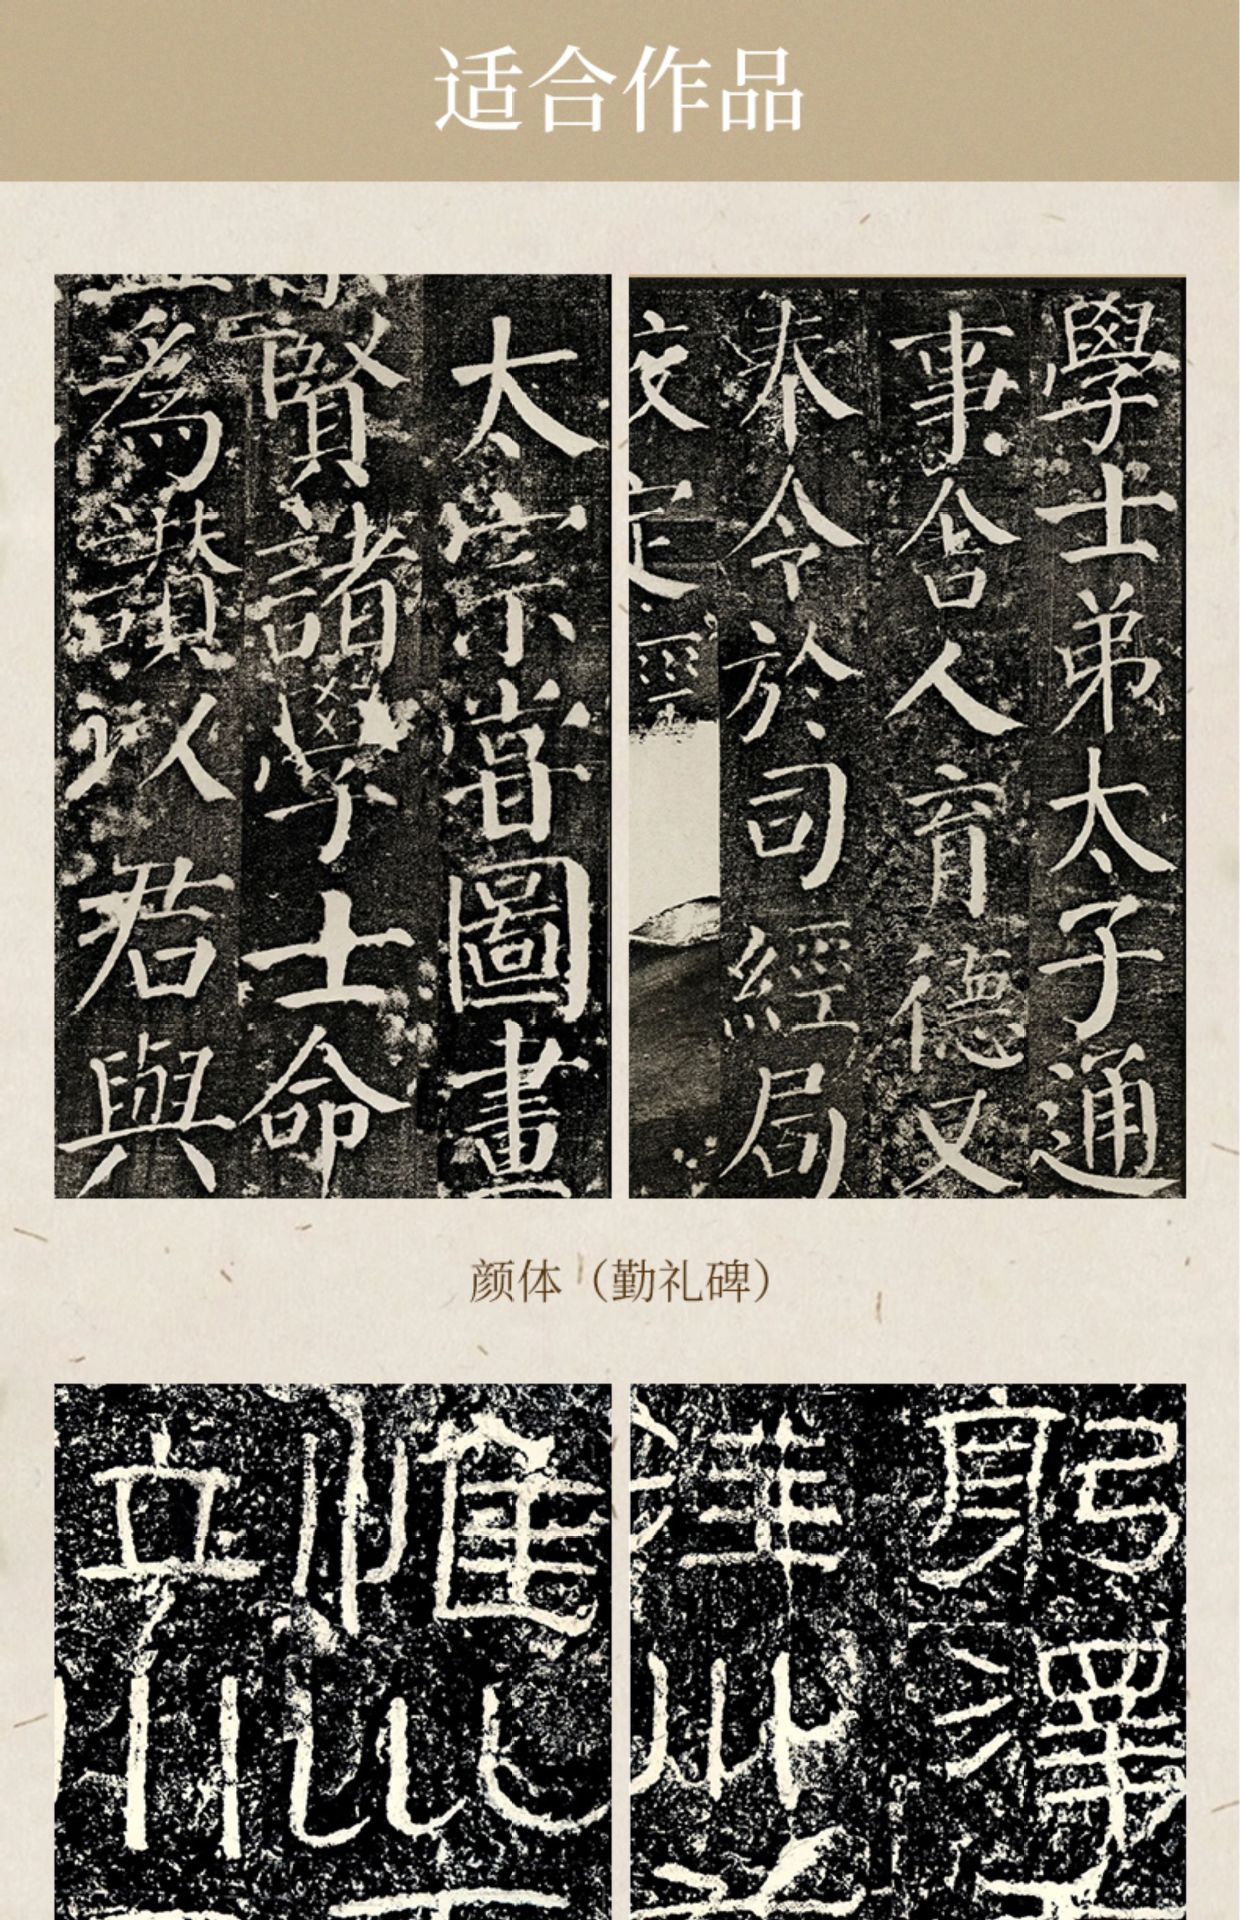 适合作品
太宗甞圖畫
賢諸學士命
為讃以君與
學士弟太子通
事舍人育德又
奉令於司經局
校定經
颜体（勤礼碑）
惟
立
川
躬
澤
洋